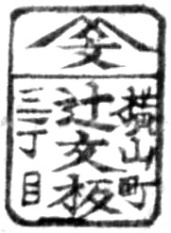 文
横山町
辻文板
三丁目